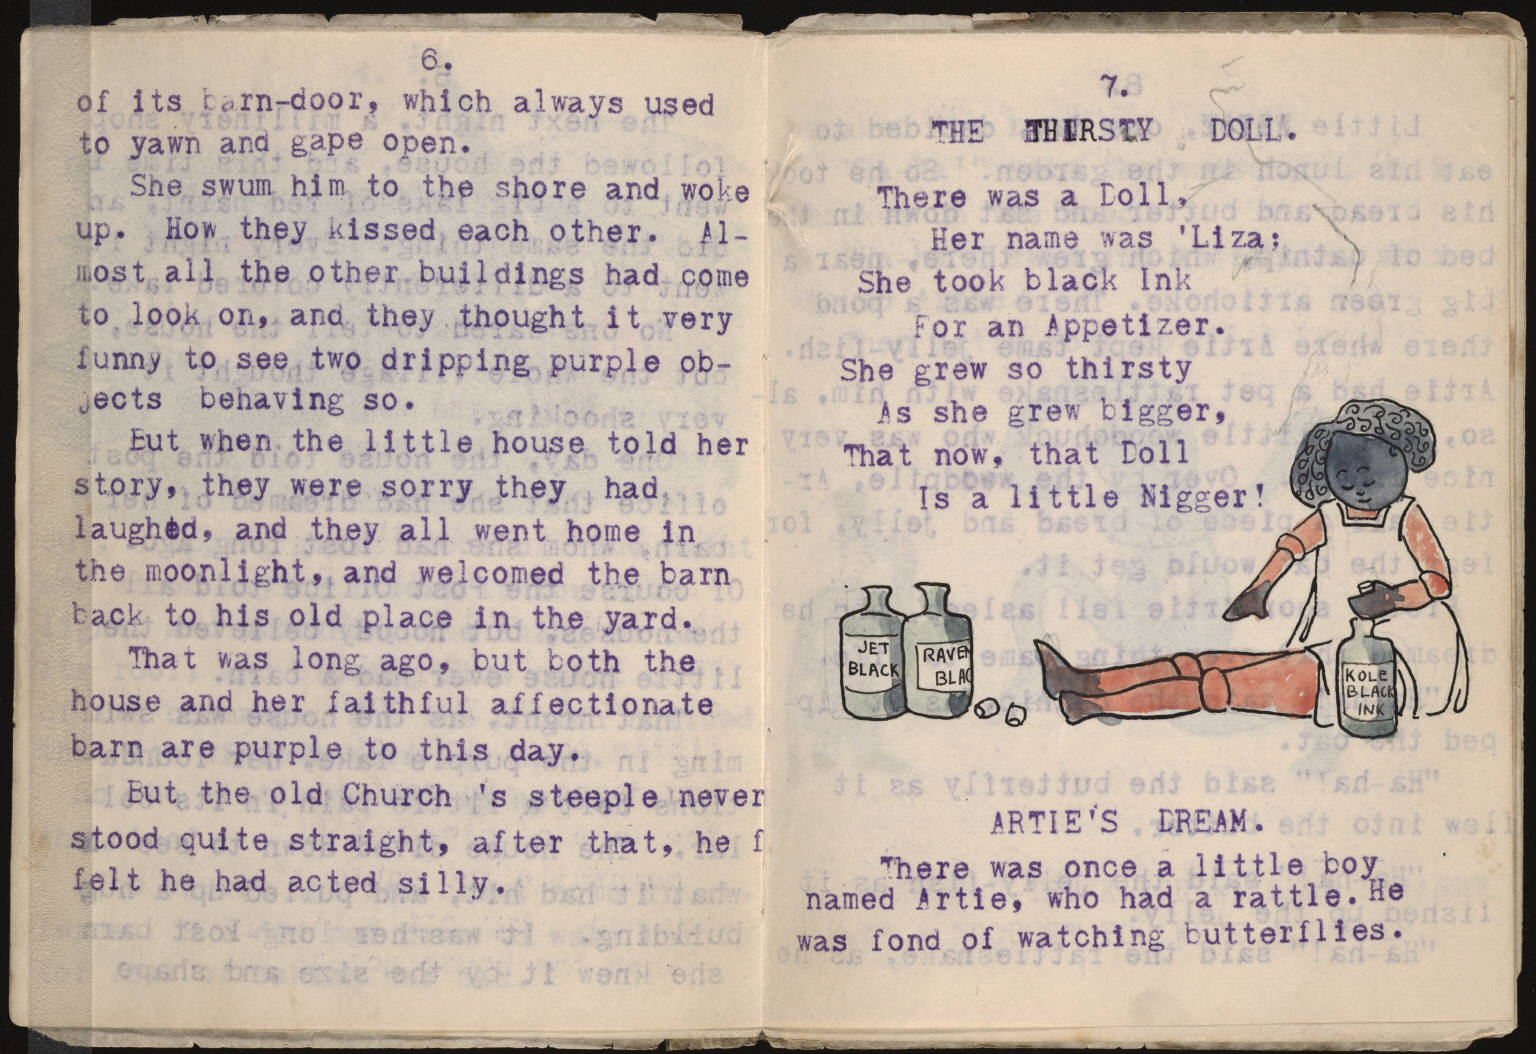 6.
of its barn-door, which always used
to yawn and gape open.
She swum him to the shore and woke
up. How they kissed each other. Al-
most all the other buildings had come
to look on, and they thought it very
funny to see two dripping purple ob-
jects behaving so.
But when the little house told her
story, they were sorry they had
laughed, and they all went home in
the moonlight, and welcomed the barn
back to his old place in the yard.
That was long ago, but both the
house and her faithful affectionate
barn are purple to this day.
But the old Church 's steeple never
stood quite straight, after that, he f
felt he had acted silly.
7.
THE THIRSTY DOLL.
There was a Doll,
Her name was 'Liza;
She took black Ink
For an Appetizer.
She grew so thirsty
As she grew bigger,
That now, that Doll
Is a little Nigger!
JET
BLACK
RAVEN
BLAC
KOLE
BLACK
INK
ARTIE'S DREAM.
There was once a little boy
named Artie, who had a rattle. He
was fond of watching butterflies.